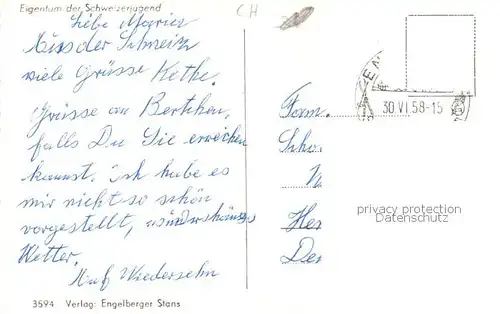 Eigentum der Schweizerjugend
CH
Liebe Maries
Aus der Schweiz
viele Grüsse Kethe.
Grüsse an Bertchen,
falls Du Sie erreichen
kannst. Ich habe es
mir nicht so schön
vorgestellt, wunderschönes
Wetter.
Auf Wiedersehn
30.VI.58-15
Fam.
Schw
Her
Der
privacy protection
Datenschutz
3594 Verlag: Engelberger Stans